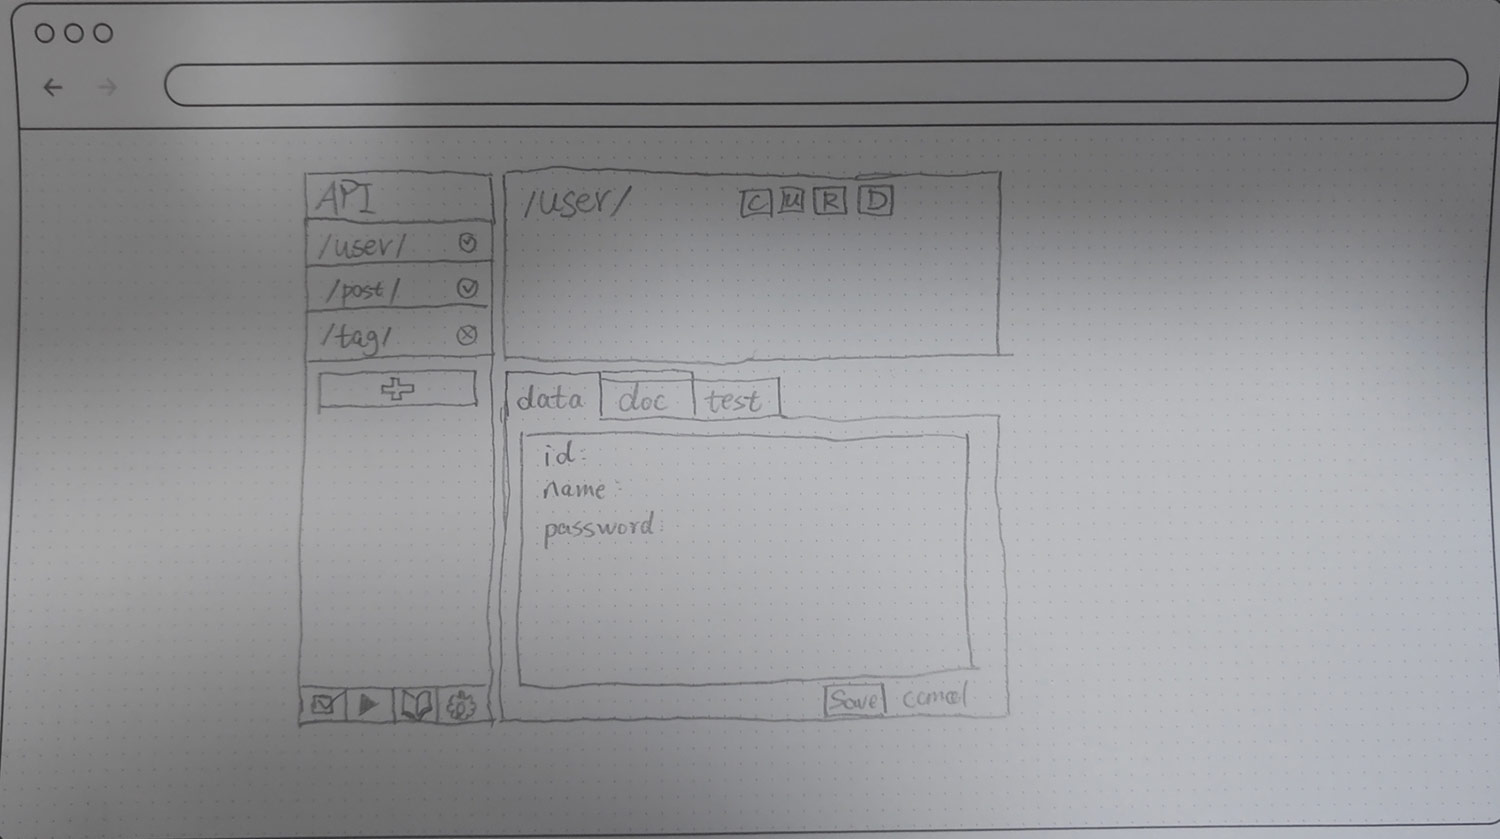 API
/user/
/post/
/tag/
/user/
C U R D
data doc test
id:
name:
password:
Save cancel